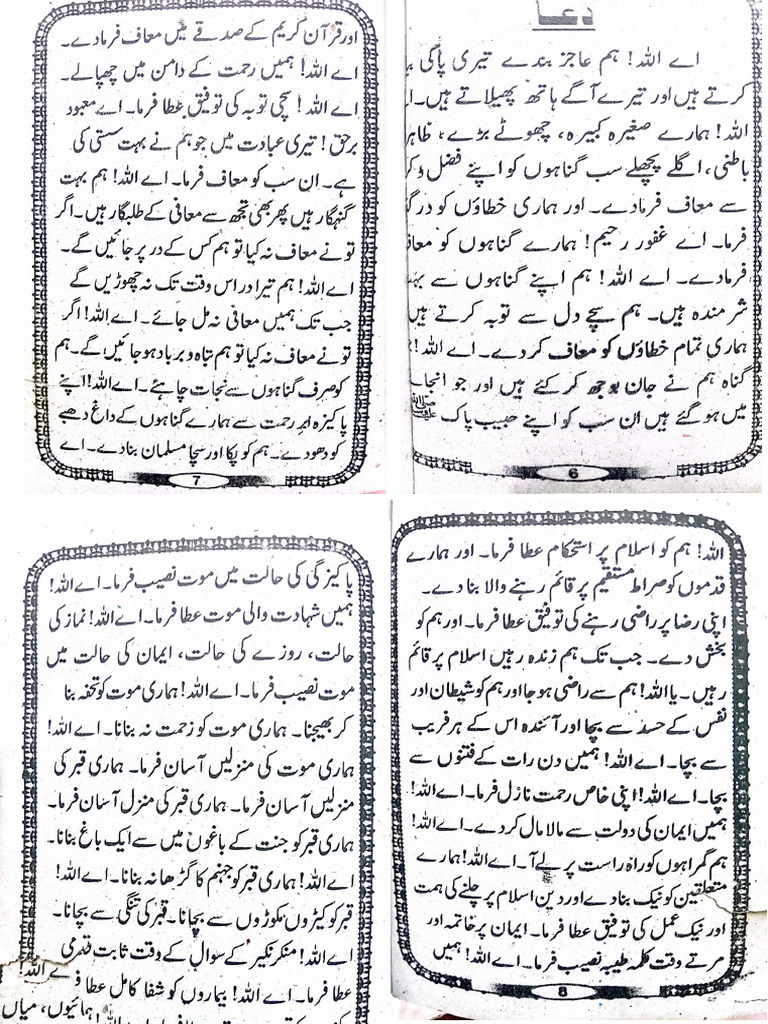 دعا
اے اللہ! ہم عاجز بندے تیری پاکی
کرتے ہیں اور تیرے آگے ہاتھ پھیلاتے ہیں۔
اللہ! ہمارے صغیرہ کبیرہ، چھوٹے بڑے،
باطنی، اگلے پچھلے سب گناہوں کو اپنے فضل و
سے معاف فرمادے۔ اور ہماری خطاؤں کو
فرما۔ اے غفور رحیم! ہمارے گناہوں کو
فرمادے۔ اے اللہ! ہم اپنے گناہوں سے
شرمندہ ہیں۔ ہم سچے دل سے توبہ کرتے ہیں
ہماری تمام خطاؤں کو معاف کردے۔ اے اللہ!
گناہ ہم نے جان بوجھ کر کئے ہیں اور جو
میں ہوگئے ہیں ان سب کو اپنے حبیب پاک ﷺ
6
اور قرآن کریم کے صدقے میں معاف فرمادے۔
اے اللہ! ہمیں رحمت کے دامن میں چھپالے۔
اے اللہ! سچی توبہ کی توفیق عطا فرما۔ اے معبود
برحق! تیری عبادت میں جو ہم نے بہت سستی کی
ہے۔ ان سب کو معاف فرما۔ اے اللہ! ہم بہت
گنہگار ہیں پھر بھی تجھ سے معافی کے طلبگار ہیں۔ اگر
تونے معاف نہ کیا تو ہم کس کے در پر جائیں گے۔
اے اللہ! ہم تیرا در اس وقت تک نہ چھوڑیں گے
جب تک ہمیں معافی نہ مل جائے۔ اے اللہ! اگر
تونے معاف نہ کیا تو ہم تباہ و برباد ہوجائیں گے۔ ہم
کو صرف گناہوں سے نجات چاہئے۔ اے اللہ! اپنے
پاکیزہ ابر رحمت سے ہمارے گناہوں کے داغ دھبے
کو دھودے۔ ہم کو پکا اور سچا مسلمان بنادے۔ اے
7
اللہ! ہم کو اسلام پر استحکام عطا فرما۔ اور ہمارے
قدموں کو صراط مستقیم پر قائم رہنے والا بنادے۔
اپنی رضا پر راضی رہنے کی توفیق عطا فرما۔ اور ہم کو
بخش دے۔ جب تک ہم زندہ رہیں اسلام پر قائم
رہیں۔ یا اللہ! ہم سے راضی ہوجا اور ہم کو شیطان اور
نفس کے حسد سے بچا اور آئندہ اس کے ہر فریب
سے بچا۔ اے اللہ! ہمیں دن رات کے فتنوں سے
بچا۔ اے اللہ! اپنی خاص رحمت نازل فرما۔ اے اللہ!
ہمیں ایمان کی دولت سے مالا مال کردے۔ اے اللہ!
ہم گمراہوں کو راہ راست پر لے آ۔ اے اللہ! ہمارے
متعلقین کو نیک بنادے اور دین اسلام پر چلنے کی ہمت
اور نیک عمل کی توفیق عطا فرما۔ ایمان پر خاتمہ اور
مرتے وقت کلمہ طیبہ نصیب فرما۔ اے اللہ! ہمیں
8
پاکیزگی کی حالت میں موت نصیب فرما۔ اے اللہ!
ہمیں شہادت والی موت عطا فرما۔ اے اللہ! نماز کی
حالت، روزے کی حالت، ایمان کی حالت میں
موت نصیب فرما۔ اے اللہ! ہماری موت کو تحفہ بنا
کر بھیجنا۔ ہماری موت کو زحمت نہ بنانا۔ اے اللہ!
ہماری موت کی منزلیں آسان فرما۔ ہماری قبر کی
منزلیں آسان فرما۔ ہماری قبر کی منزل آسان فرما۔
ہماری قبر کو جنت کے باغوں میں سے ایک باغ بنانا۔
اے اللہ! ہماری قبر کو جہنم کا گڑھا نہ بنانا۔ اے اللہ!
قبر کو کیڑوں مکوڑوں سے بچانا۔ قبر کی تنگی سے بچانا۔
اے اللہ! منکر نکیر کے سوال کے وقت ثابت قدمی
عطا فرما۔ اے اللہ! بیماروں کو شفا کامل عطا